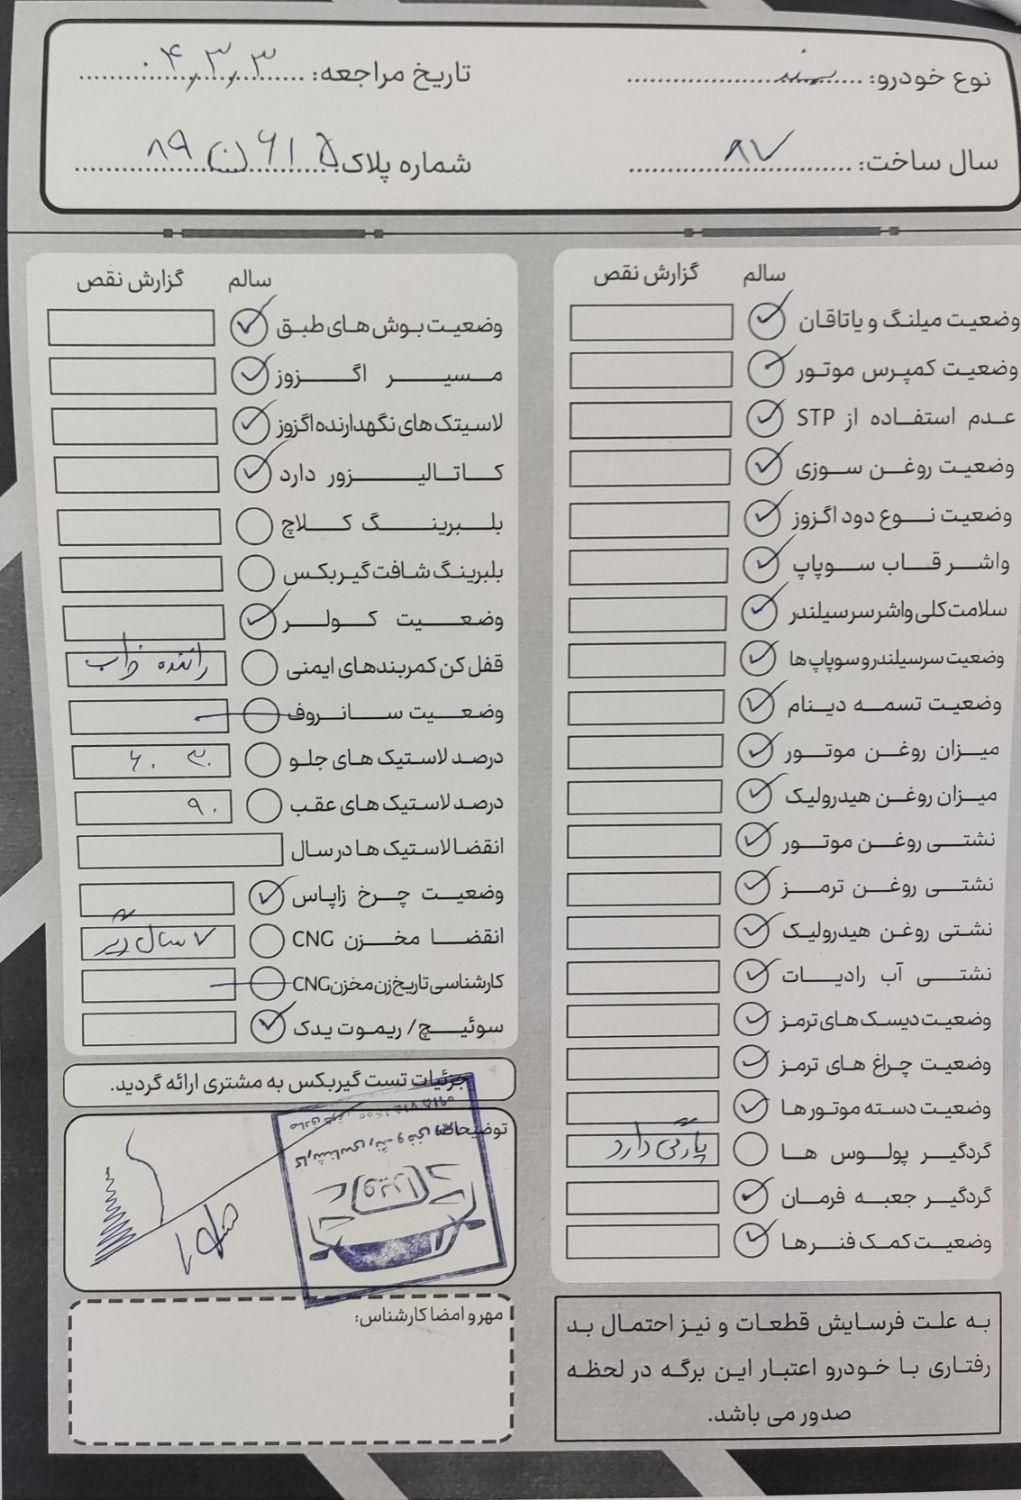 نوع خودرو: سمند
تاریخ مراجعه: ۰۴,۳,۳
سال ساخت: ۸۷
شماره پلاک: ۸۹ ن ۶۱۵
سالم گزارش نقص
وضعیت میلنگ و یاتاقان
وضعیت کمپرس موتور
عدم استفاده از STP
وضعیت روغن سوزی
وضعیت نوع دود اگزوز
واشر قاب سوپاپ
سلامت کلی واشر سرسیلندر
وضعیت سرسیلندر و سوپاپ ها
وضعیت تسمه دینام
میزان روغن موتور
میزان روغن هیدرولیک
نشتی روغن موتور
نشتی روغن ترمز
نشتی روغن هیدرولیک
نشتی آب رادیات
وضعیت دیسک های ترمز
وضعیت چراغ های ترمز
وضعیت دسته موتور ها
گردگیر پولوس ها پارگی دارد
گردگیر جعبه فرمان
وضعیت کمک فنر ها
به علت فرسایش قطعات و نیز احتمال بد
رفتاری با خودرو اعتبار این برگه در لحظه
صدور می باشد.
سالم گزارش نقص
وضعیت بوش های طبق
مسیر اگزوز
لاستیک های نگهدارنده اگزوز
کاتالیزور دارد
بلبرینگ کلاچ
بلبرینگ شافت گیربکس
وضعیت کولر
قفل کن کمربندهای ایمنی راننده خراب
وضعیت سانروف
درصد لاستیک های جلو ۳۰ ۶۰
درصد لاستیک های عقب ۹۰
انقضا لاستیک ها در سال
وضعیت چرخ زاپاس
انقضا مخزن CNG ۷ سال دیگر
کارشناسی تاریخ زن مخزن CNG
سوئیچ/ ریموت یدک
جزئیات تست گیربکس به مشتری ارائه گردید.
توضیحات:
کارشناسی رنگ و فنی
ویرا
مهر و امضا کارشناس: